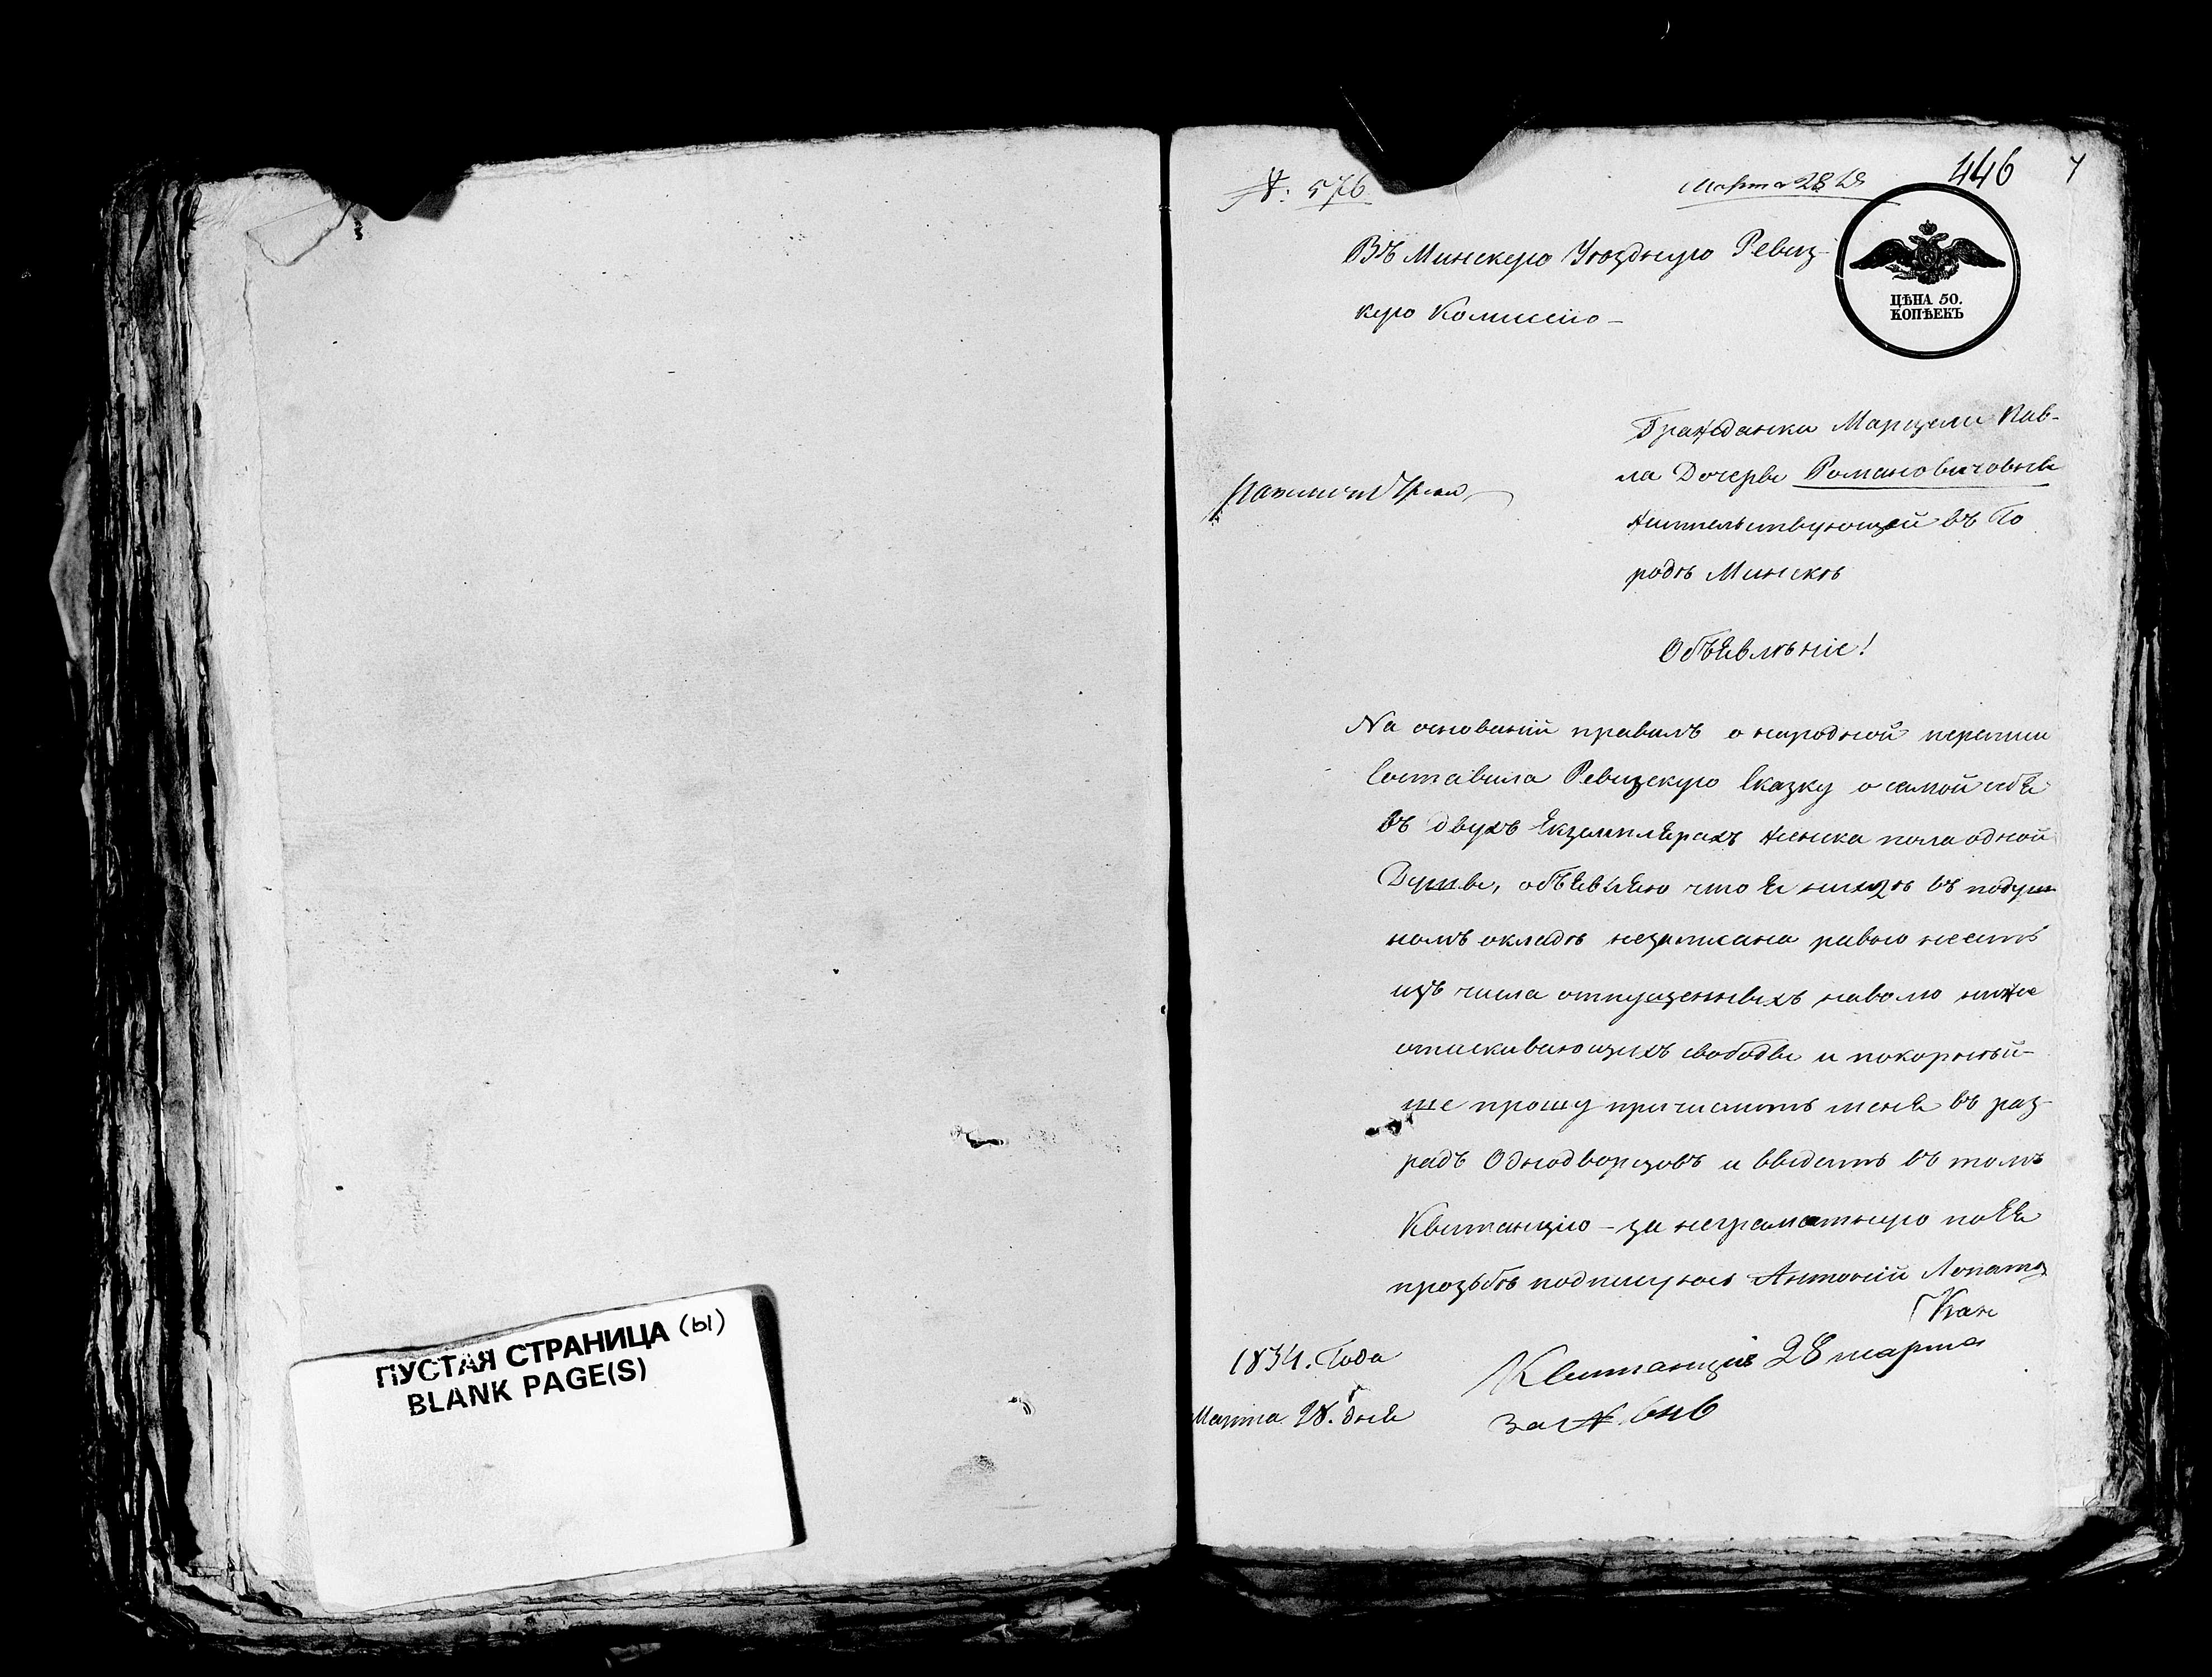 ПУСТАЯ СТРАНИЦА (ы)
BLANK PAGE(S)
№: 576
Марта 28
446
ЦѢНА 50.
КОПѢЕКЪ
Въ Минскую Уѣздную Ревиз-
кую Комиссію -
Гражданки Марцели Пав-
ла Дочеры Романовичовны
жительствующей въ Го
родѣ Минскѣ
Объявлѣніе!
На основаній правилъ о народной переписи
Составила Ревизскую Сказку о самой себя
въ двухъ Екземплярахъ женска пола одной
Души, объявляю что я нигдѣ въ подуш
номъ окладѣ незаписана равно несть
изъ числа отпущенныхъ наволю ниже
отискивающихъ свободы и покорный-
ше прошу причислить меня въ раз-
радъ Однодворцовъ и ввидать въ томъ
Квитанцію - за неграматную по Ея
прозьбѣ подписуюсь Антоній Лопато
1834. Года
Марта 28. дня
Квитанція 28 марта
за №